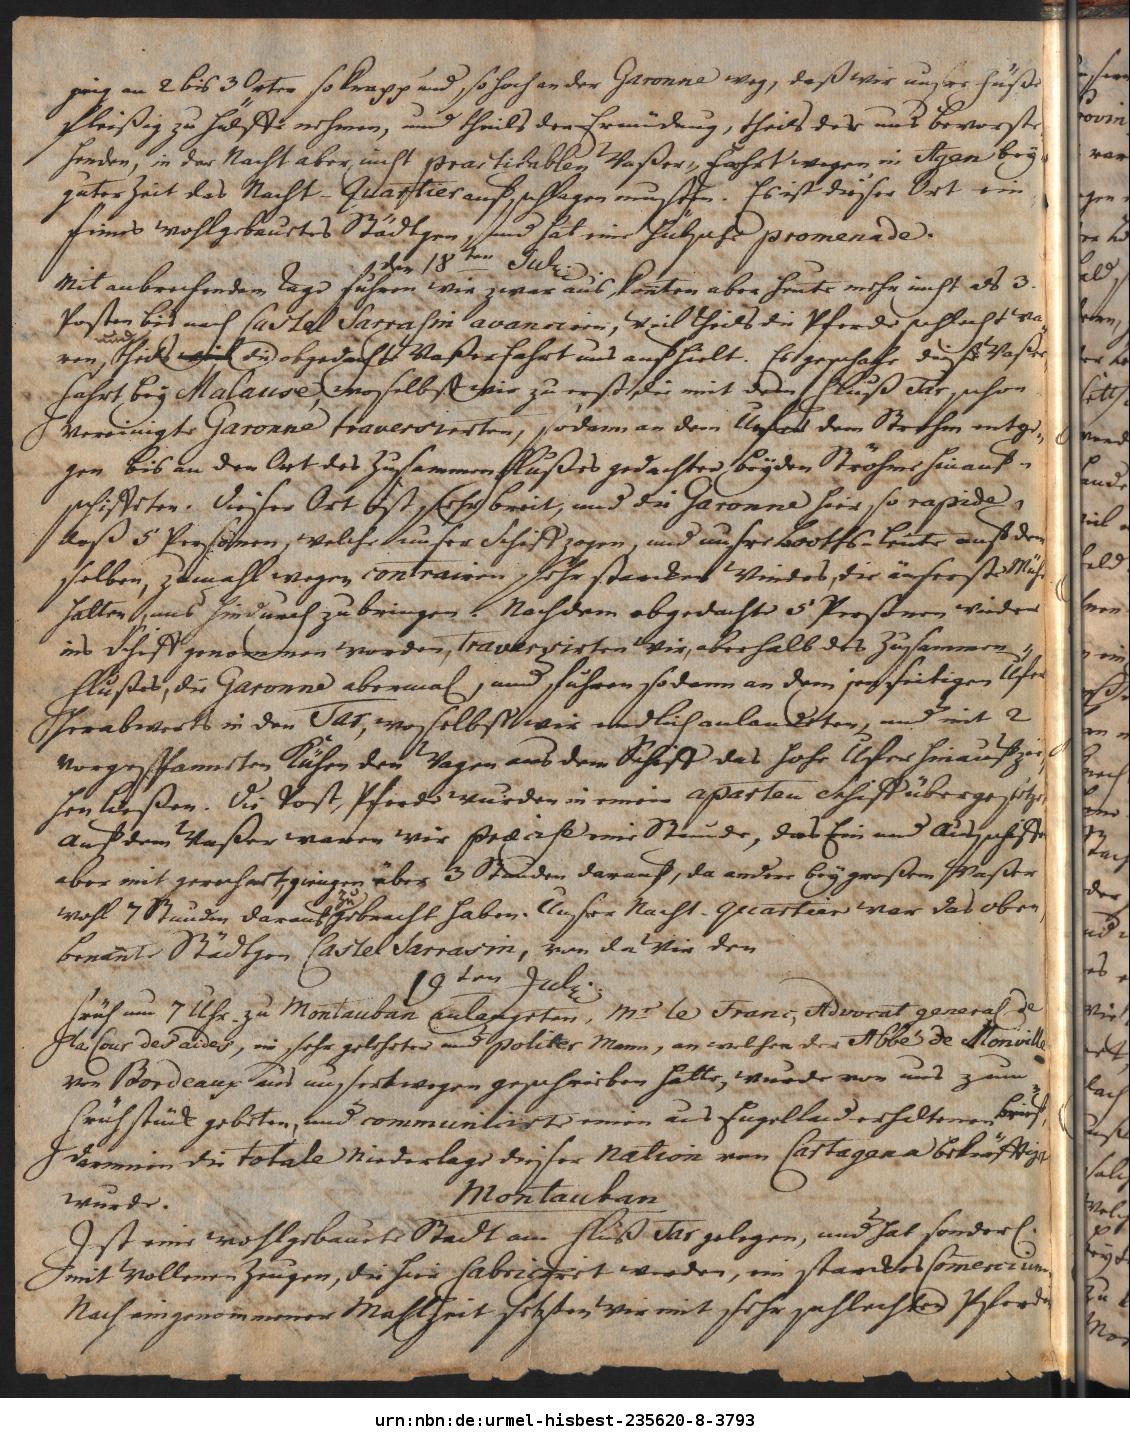 ging an 2 bis 3 Orten so knapp und so hoch an der Garonne weg, daß wir unsre Füße
fleißig zu Hülffe nehmen, und theils der Ermüdung, theils der uns bevorste-
henden, in der Nacht aber nicht practicablen Waßer-Fahrt wegen in Agen bey
guter Zeit das Nacht-Quartier aufschlagen musten. Es ist dieser Ort ein
feines wohlgebautes Städtgen, und hat eine hübsche promenade.
den 18ten Julii
Mit anbrechendem Tage fuhren wir zwar aus, konten aber heute mehr nicht als 3.
Posten bis nach Castel Sarrasin avanciren, weil theils die Pferde schlecht wa-
ren, theils die obgedachte Waßerfahrt uns aufhielt. Es geschahe diese Waßer
fahrt bey Malause, woselbst wir zu erst die mit dem Fluß Tar schon
vereinigte Garonne traversierten, sodann an dem Ufer dem Strohm entge-
gen bis an den Ort des Zusammenflußes gedachter beyden Ströhme hinauf-
schifften. Dieser Ort ist sehr breit, und die Garonne hier so rapide,
daß 5 Personen, welche unser Schiff zogen, und unsre Booths-Leute auf dem
selben, zumahl wegen contrairen sehr starcken Windes, die äuserste Mühe
hatten, uns hindurch zu bringen. Nachdem obgedachte 5 Personen wieder
ins Schiff genommen worden, traversirten wir, oberhalb des Zusammen-
flußes, die Garonne abermal, und fuhren sodann an dem jenseitigen Ufer
herabwerts in den Tar, woselbst wir endlich anlandeten, und mit 2
vorgespannten Kühen den Wagen aus dem Schiff das hohe Ufer hinauf zie-
hen ließen. Die Post-Pferde wurden in einem aparten Schiff übergesetzt.
Auf dem Waßer waren wir precise eine Stunde, das Ein und Ausschiffen
aber mit gerechnet, giengen über 3 Stunden darauf, da andere bey großem Waßer
wohl 7 Stunden darauf zugebracht haben. Unser Nacht-quartier war das oben
benante Städtgen Castel Sarrasin, von da wir den
19ten Julii
früh um 7 Uhr zu Montauban anlangeten. Mr. le Franc, Advocat general de
la Cour des aides, ein sehr gelehrter und politer Mann, an welchen der Abbé de Monville
von Bordeaux aus unsertwegen geschrieben hatte, wurde von uns zum
Frühstück gebeten, und communicirte einen aus Engelland erhaltenen Brief,
darinnen die totale Niederlage dieser Nation von Cartagena bekräfftiget
wurde.
Montauban
Ist eine wohlgebaute Stadt am Fluß Tar gelegen, und hat sonderl.
mit wollenen Zeugen, die hier fabriciret werden, ein starckes Commercium.
Nach eingenommener Mahlzeit setzten wir mit sehr schlechten Pferden
urn:nbn:de:urmel-hisbest-235620-8-3793